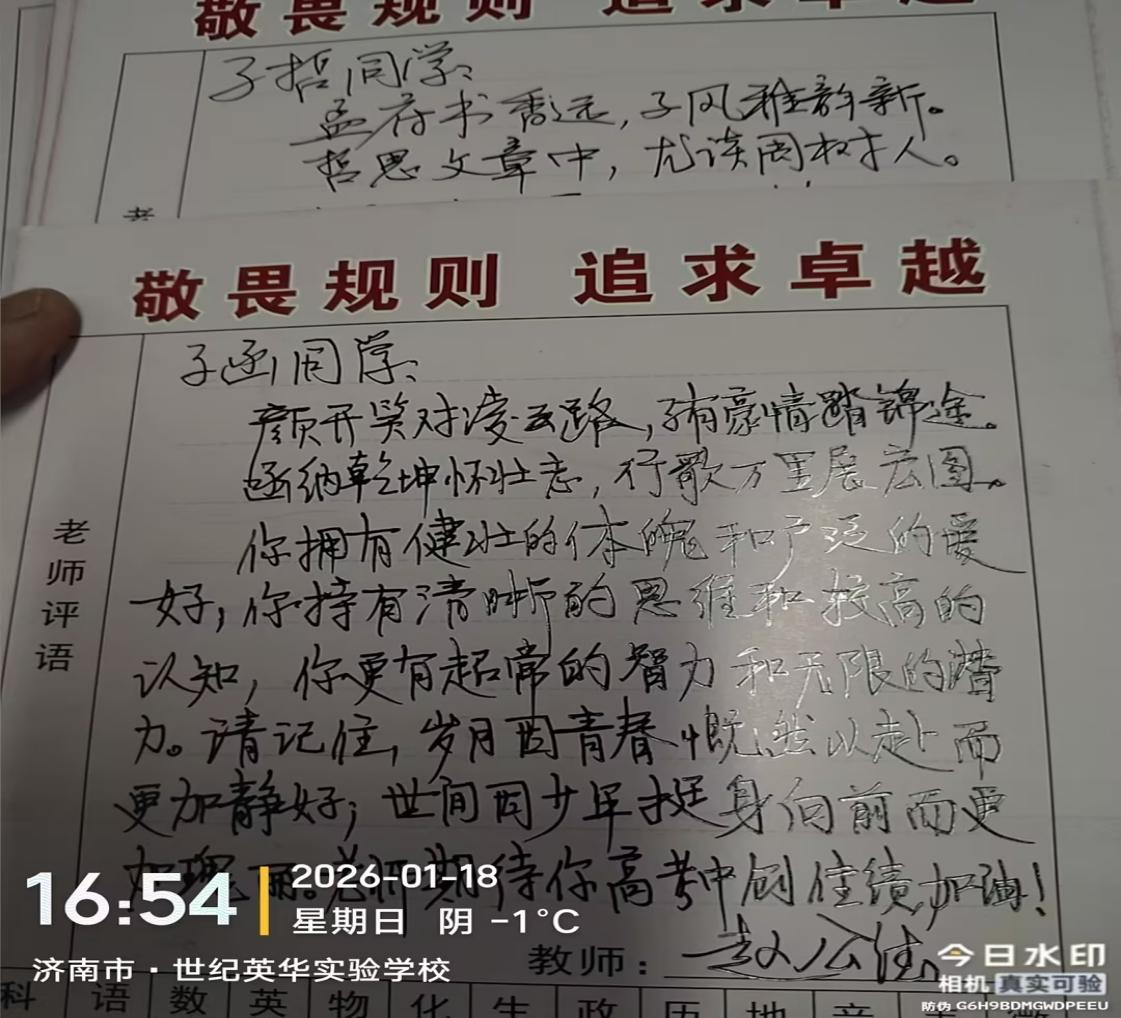 敬畏规则 追求卓越
子哲同学：
孟府书香远，子风雅韵新。
哲思文章中，尤谈周树人。
老
敬畏规则 追求卓越
子函同学：
颜开笑对凌云路，子有豪情踏锦途。
函纳乾坤怀壮志，行歌万里展宏图。
你拥有健壮的体魄和广泛的爱
好，你持有清晰的思维和较高的
认知，你更有超常的智力和无限的潜
力。请记住，岁月因青春慨然以赴而
更加静好；世间因少年挺身向前而更
加瑰丽。老师期待你高考中创佳绩，加油！
老师评语
教师：
16:54
2026-01-18
星期日 阴 -1°C
济南市·世纪英华实验学校
今日水印
相机 真实可验
防伪 G6H9BDMGWDPEEU
科 语 数 英 物 化 生 政 历 地 音